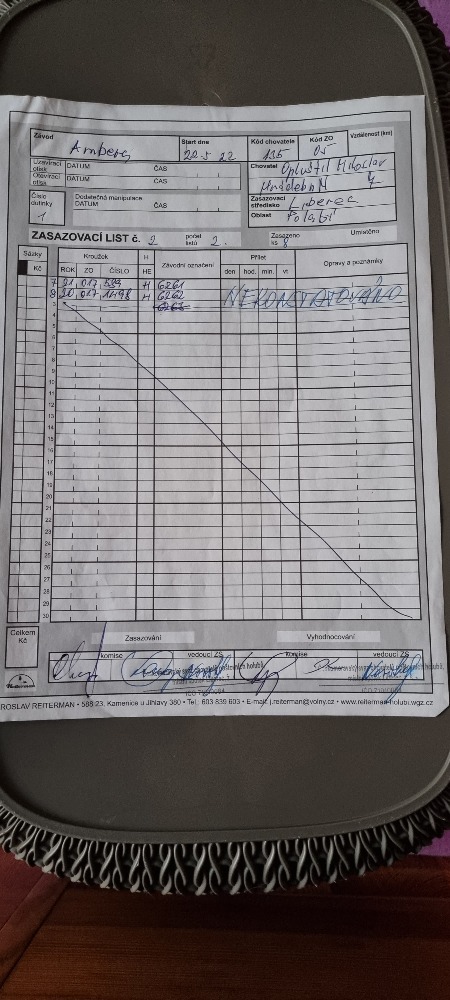 Závod Amberg Start dne 22.5.22 Kód chovatele 135 Kód ZO 05 Vzdálenost (km)
Uzavírací otisk DATUM ČAS Chovatel Opluštil Miloslav
Otevírací otisk DATUM ČAS
Číslo dutinky 1 Dodatečná manipulace DATUM ČAS Zasazovací středisko Liberec
Oblast Polabí
ZASAZOVACÍ LIST č. 2 počet listů 2. Zasazeno ks 8 Umístěno
Sázky Kroužek H Závodní označení Přílet Opravy a poznámky
Kč ROK ZO ČÍSLO HE den hod. min. vt
7 21 017 584 H 6261 NEKONSTATOVÁNO
8 20 017 1498 H 6262
3
4
5
6
7
8
9
10
11
12
13
14
15
16
17
18
19
20
21
22
23
24
25
26
27
28
29
30
Celkem Kč Zasazování Vyhodnocování
komise vedoucí ZS komise vedoucí ZS
Reiterman
ROSLAV REITERMAN • 588 23, Kamenice u Jihlavy 380 • Tel.: 603 839 603 • E-mail: j.reiterman@volny.cz • www.reiterman-holubi.wgz.cz